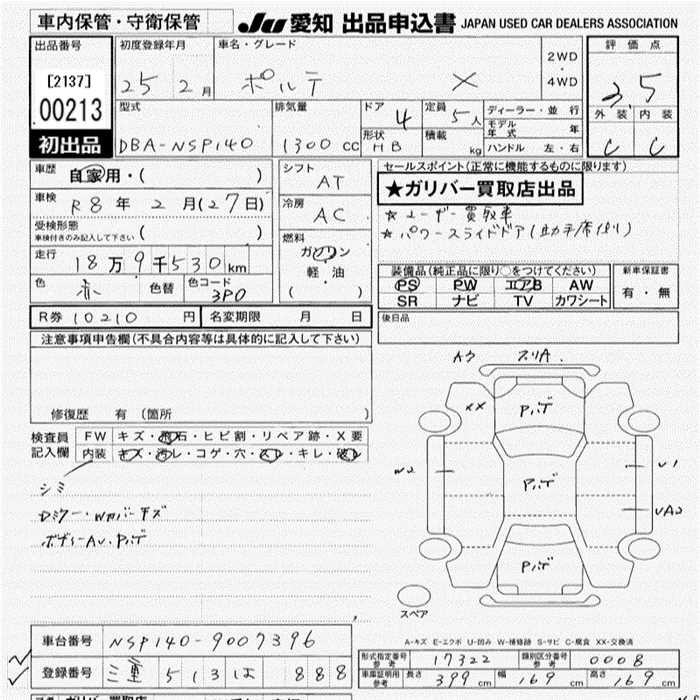 車内保管・守衛保管
JU 愛知 出品申込書 JAPAN USED CAR DEALERS ASSOCIATION
出品番号 初度登録年月 車名・グレード 2WD・4WD 評価点
[2137] 25 2月 ポルテ X 3.5
00213 型式 排気量 ドア 4 定員 5人 ディーラー・並行 外装 内装
初出品 DBA-NSP140 1300cc 形状 HB 積載 kg モデル年式 年 C C
ハンドル 左・右
車歴 自家用・( ) シフト AT セールスポイント(正常に機能するものに限ります)
車検 R8年 2月(27日) 冷房 AC ★ガリバー買取店出品
受検形態 車検付きのみ記入して下さい ( ) ★ユーザー買取車
走行 18万9千530km 燃料 ガソリン ★パワースライドドア(助手席側)
軽・油 装備品(純正品に限り○をつけてください) 新車保証書
色 赤 色替 色コード 3P0 ( ) PS PW エアB AW 有・無
SR ナビ TV カワシート
R券 10210円 名変期限 月 日 後日品
注意事項申告欄(不具合内容等は具体的に記入して下さい)
修復歴 有 (箇所 )
検査員記入欄 FW キズ・飛石・ヒビ割・リペア跡・X要
内装 キズ・汚レ・コゲ・穴・スレ・キレ・破レ
シミ
ボディーAU・Pハゲ
XX
Pハゲ
W2 Pハゲ U1
UA2
Pハゲ
スペア
A-キズ E-エクボ U-凹み W-補修跡 S-サビ C-腐食 XX-交換済
車台番号 NSP140-9007396
型式指定番号 参考 17322 類別区分番号 参考 0008
登録番号 三重 513 は 888
車庫証明用 参考 長さ 399cm 幅 169cm 高さ 169cm